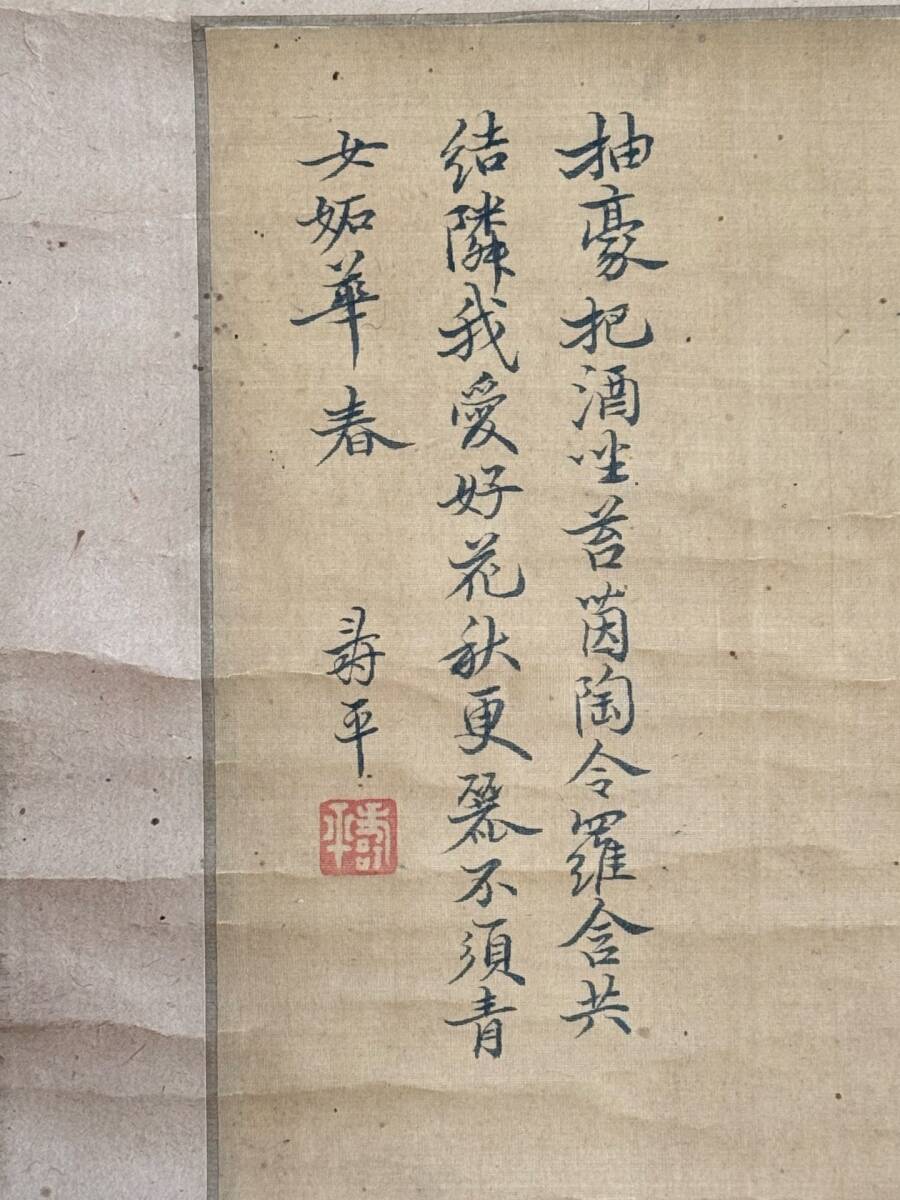 抽豪把酒坐苔茵陶令羅含共
結隣我愛好花秋更麗不須青
女妬華春
壽平
壽平